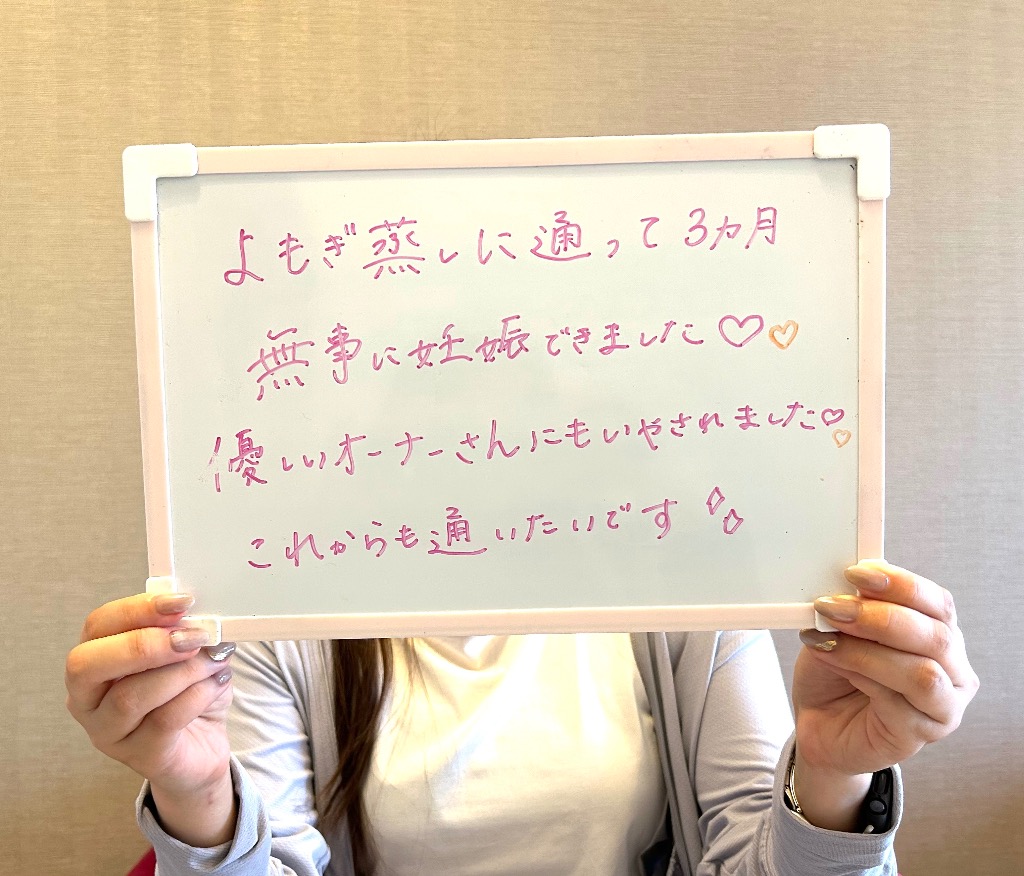 よもぎ蒸しに通って3ヵ月
無事に妊娠できました♡♡
優しいオーナーさんにもいやされました♡♡
これからも通いたいです